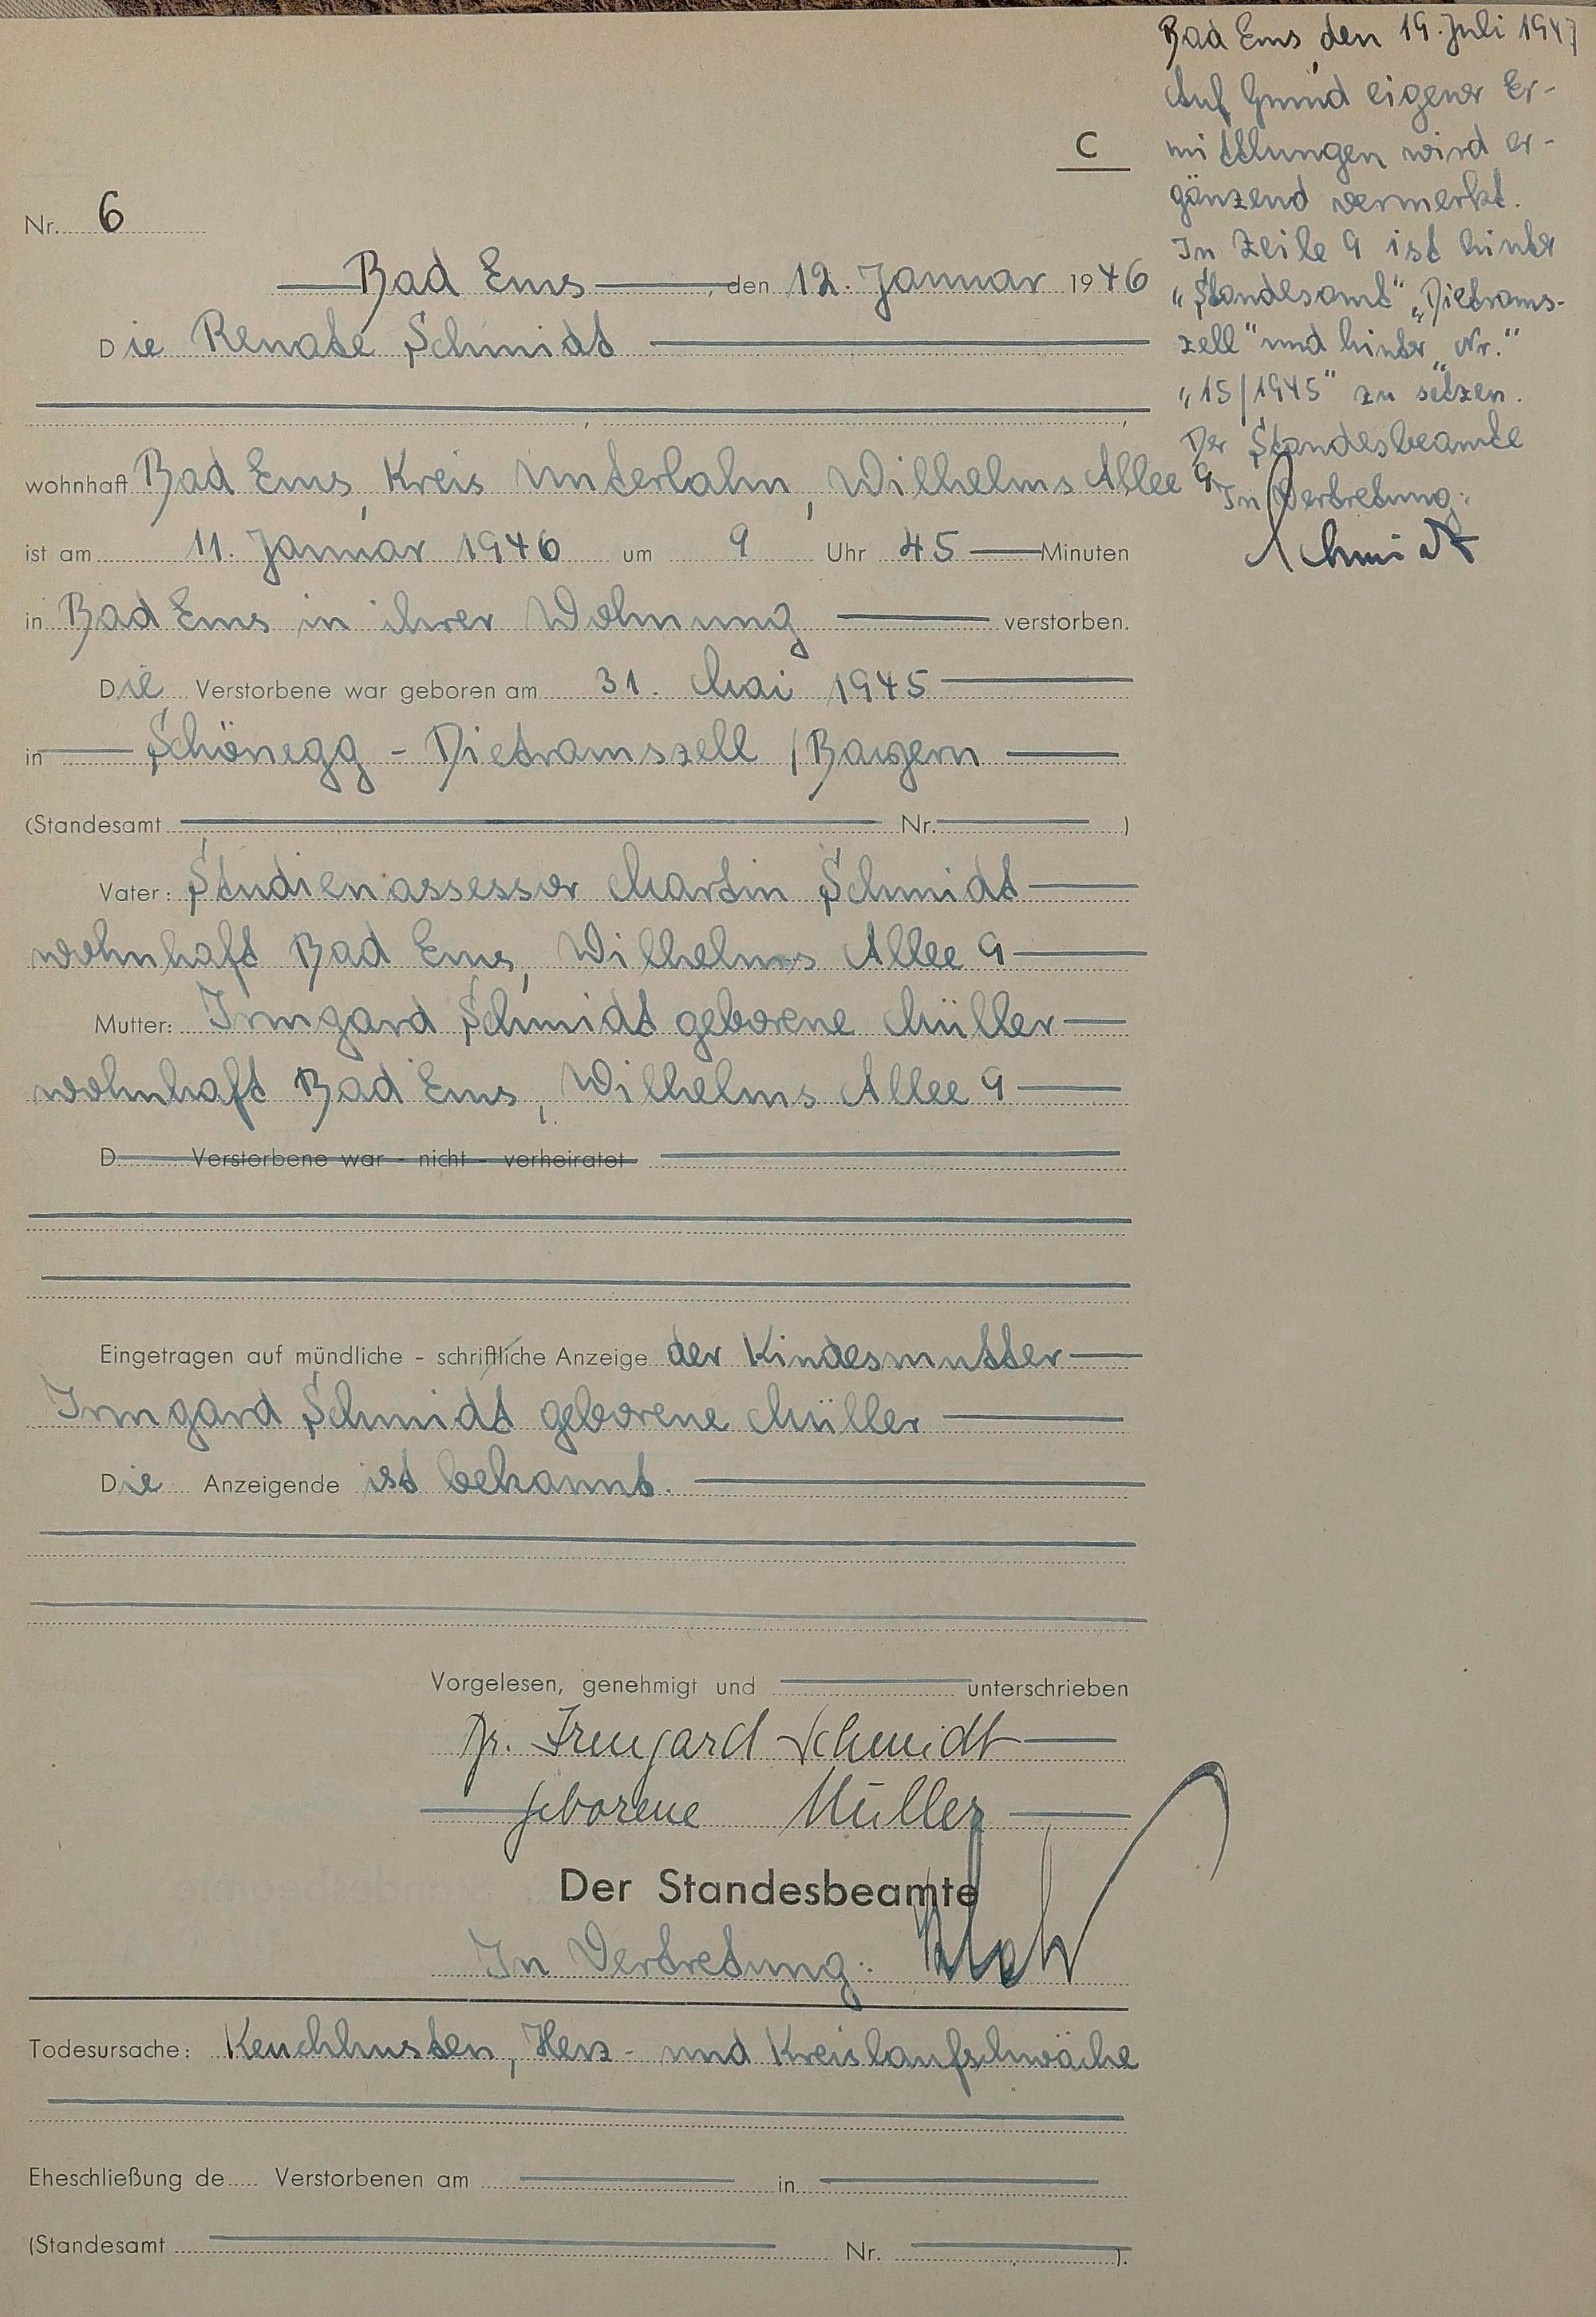 C
Nr. 6
Bad Ems, den 12. Januar 1946
Die Renate Schmidt
wohnhaft Bad Ems, Kreis Unterlahn, Wilhelms Allee 9
ist am 11. Januar 1946 um 9 Uhr 45 Minuten
in Bad Ems in ihrer Wohnung verstorben.
Die Verstorbene war geboren am 31. Mai 1945
in Schönegg - Dietramszell / Bayern
(Standesamt Nr. )
Vater: Studienassessor Martin Schmidt
wohnhaft Bad Ems, Wilhelms Allee 9
Mutter: Irmgard Schmidt geborene Müller
wohnhaft Bad Ems, Wilhelms Allee 9
D Verstorbene war - nicht - verheiratet
Eingetragen auf mündliche - schriftliche Anzeige der Kindesmutter
Irmgard Schmidt geborene Müller
Die Anzeigende ist bekannt.
Vorgelesen, genehmigt und unterschrieben
Dr. Irmgard Schmidt
geborene Müller
Der Standesbeamte
In Vertretung:
Todesursache: Keuchhusten, Herz- und Kreislaufschwäche
Eheschließung de Verstorbenen am in
(Standesamt Nr. ).
Bad Ems, den 19. Juli 1947
Auf Grund eigener Er-
mittlungen wird er-
gänzend vermerkt.
In Zeile 9 ist hinter
"Standesamt" „Dietrams-
zell" und hinter „Nr."
"15/1945" zu setzen.
Der Standesbeamte
In Vertretung:
Schmidt